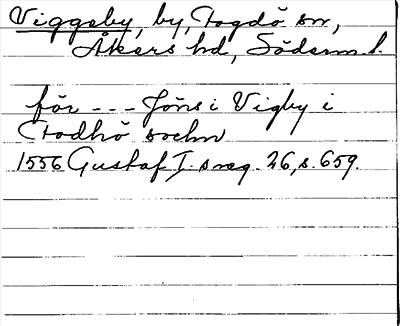 Viggeby, by, Togdö sn,
Åkers hd, Söderm. l.
för --- Jöns i Vigby i
Togdhö sochn
1556 Gustaf I:s reg. 26, s. 659.